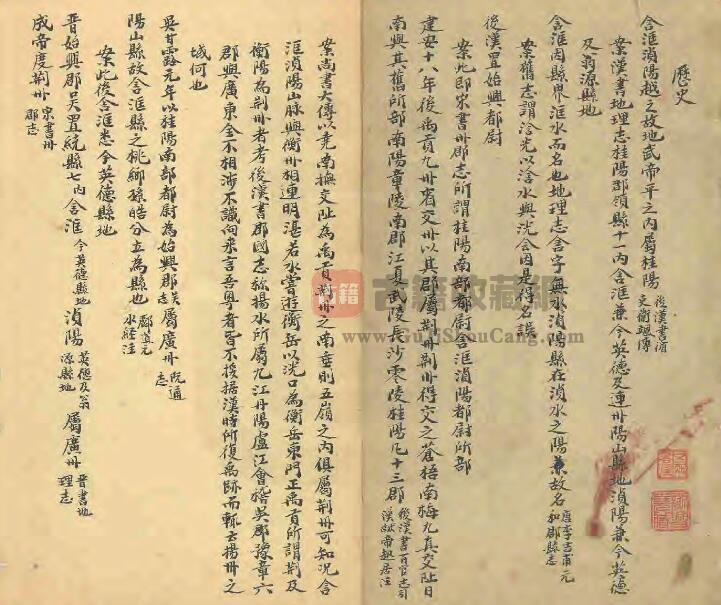 歷史
含洭湞陽越之故地武帝平之內屬桂陽後漢書循吏衛颯傳
案漢書地理志桂陽郡領縣十一內含洭兼今英德及連州陽山縣地湞陽兼今英德
及翁源縣地
含洭因縣界洭水而名也地理志含字無水湞陽縣在湞水之陽兼故名唐李吉甫元和郡縣志
案舊志謂浛光以浛水與洸会因是得名誤
後漢置始興都尉
案此即宋書州郡志所謂桂陽南部都尉含洭湞陽都尉所部
建安十八年復禹貢九州省交州以其郡屬荆州荆州得交之蒼梧南海九真交阯日
南與其舊所部南陽章陵南郡江夏武陵長沙零陵桂陽凡十三郡後漢書百官志引漢獻帝起居注
案尚書大傳以堯南撫交阯為禹貢荆州之南垂則五嶺之內俱屬荆州可知况含
洭湞陽山脉與衡州相連明湛若水嘗遊衡岳以洸口為衡岳東門正禹貢所謂荆及
衡陽為荆州者考後漢書郡國志称揚水所屬九江丹陽廬江會稽吳郡豫章六
郡與廣東全不相涉不識向來言吾粤者皆不援據漢時所復禹跡而輒云揚州之
域何也
吳甘露元年以桂陽南部都尉為始興郡吳志屬廣州阮通志
陽山縣故含洭縣之桃鄉孫皓分立為縣也酈道元水經注
案此後含洭悉今英德縣地
晉始興郡吳置統縣七內含洭今英德縣地湞陽英德及翁源縣地屬廣州晉書地理志
成帝度荆州宋書州郡志
古籍
古籍收藏網
www.GuJiShouCang.com